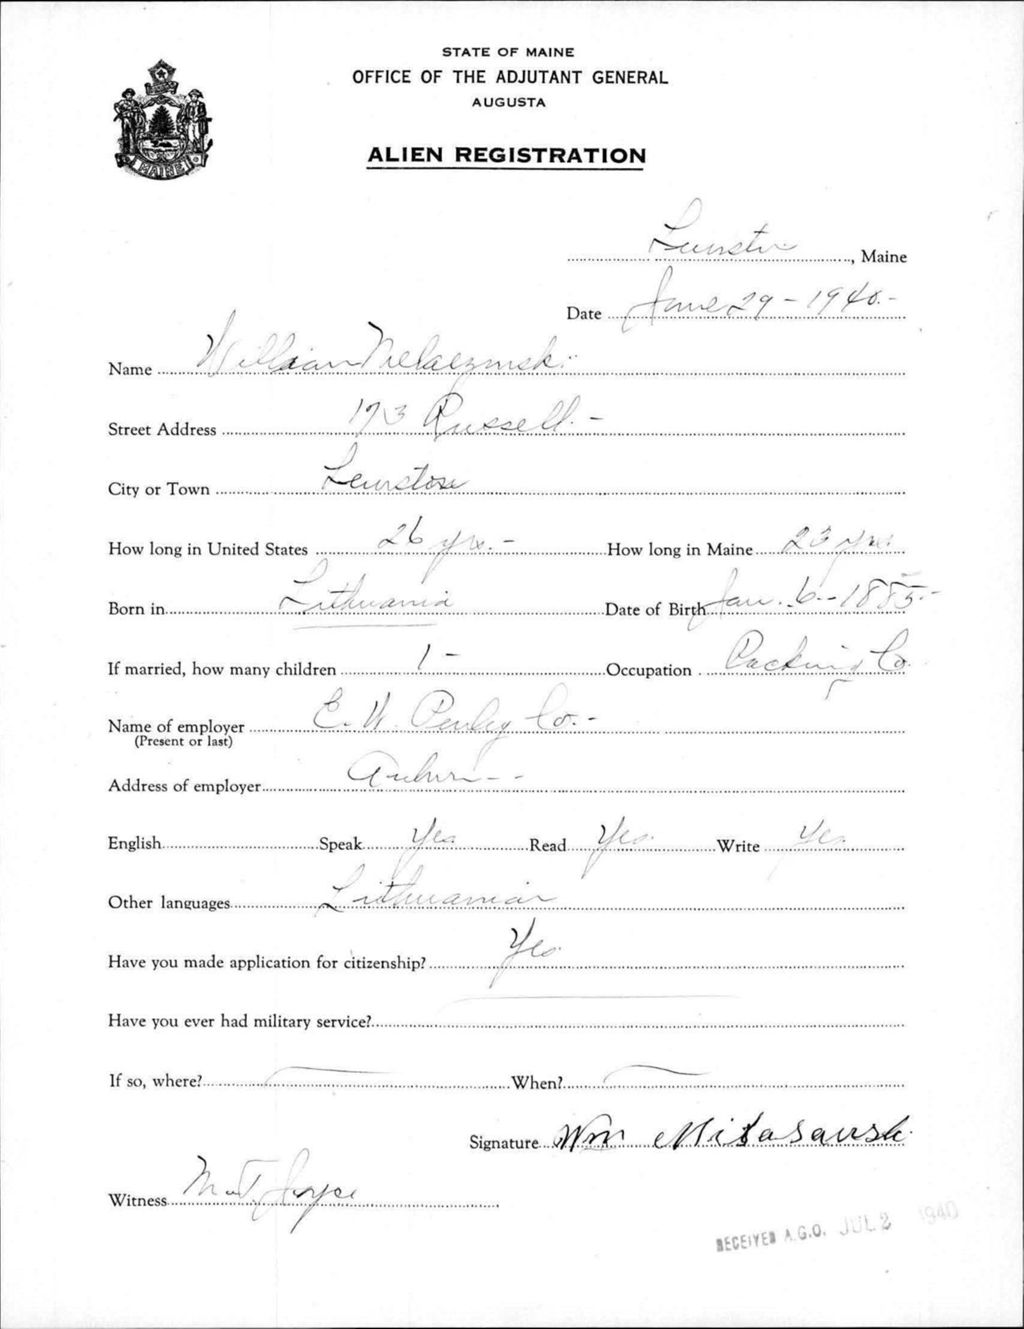 STATE OF MAINE
OFFICE OF THE ADJUTANT GENERAL
AUGUSTA
MAINE
ALIEN REGISTRATION
Lewiston, Maine
Date June 29 - 1940. -
Name William
Street Address 173 Russell. -
City or Town Lewiston
How long in United States 26 yrs. - How long in Maine 23 yrs.
Born in Lithuania Date of Birth Jan. 6 - 1885 -
If married, how many children 1 - Occupation Packing Co.
Name of employer E. W. Penley Co. -
(Present or last)
Address of employer Auburn - -
English Speak Yes Read Yes Write Yes
Other languages Lithuanian
Have you made application for citizenship? Yes
Have you ever had military service?
If so, where? When?
Signature Wm
Witness M. T. Joyce
RECEIVED A.G.O. JUL 2 1940